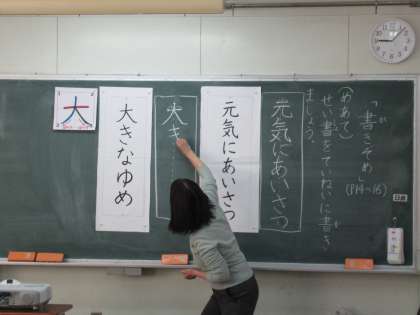 「書きぞめ」
(P14〜15)
(めあて)
せい書をていねいに書き
ましょう。
元気にあいさつ
元気にあいさつ
大き
大きなゆめ
大